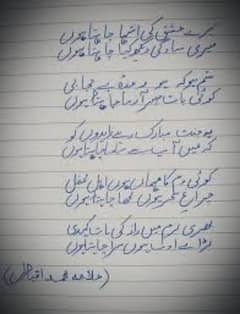 ترے عشق کی انتہا چاہتا ہوں
مری سادگی دیکھ کیا چاہتا ہوں
ستم ہو کہ ہو وعدہ بے حجابی
کوئی بات صبر آزما چاہتا ہوں
یہ جنت مبارک رہے زاہدوں کو
کہ میں آپ کا سامنا چاہتا ہوں
کوئی دم کا مہماں ہوں اہل محفل
چراغ سحر ہوں بجھا چاہتا ہوں
بھری بزم میں راز کی بات کہہ دی
بڑا بے ادب ہوں سزا چاہتا ہوں
(علامہ محمد اقبال)